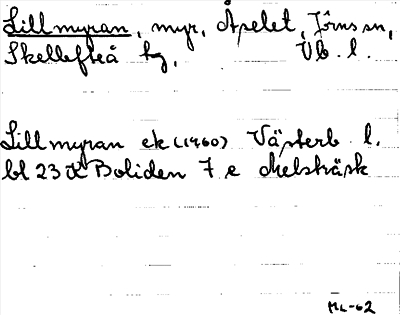 Lillmyran, myr, Åpelet, Jörns sn,
Skellefteå tg, Vb. l.
Lillmyran ek (1960) Västerb l.
bl 23 K Boliden 7 e Melsträsk
ML-62